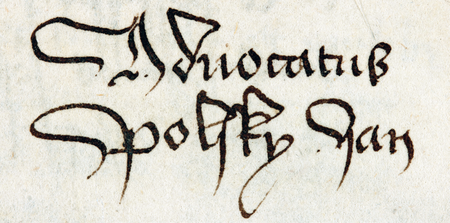 Advocatus
Spolsky Jan